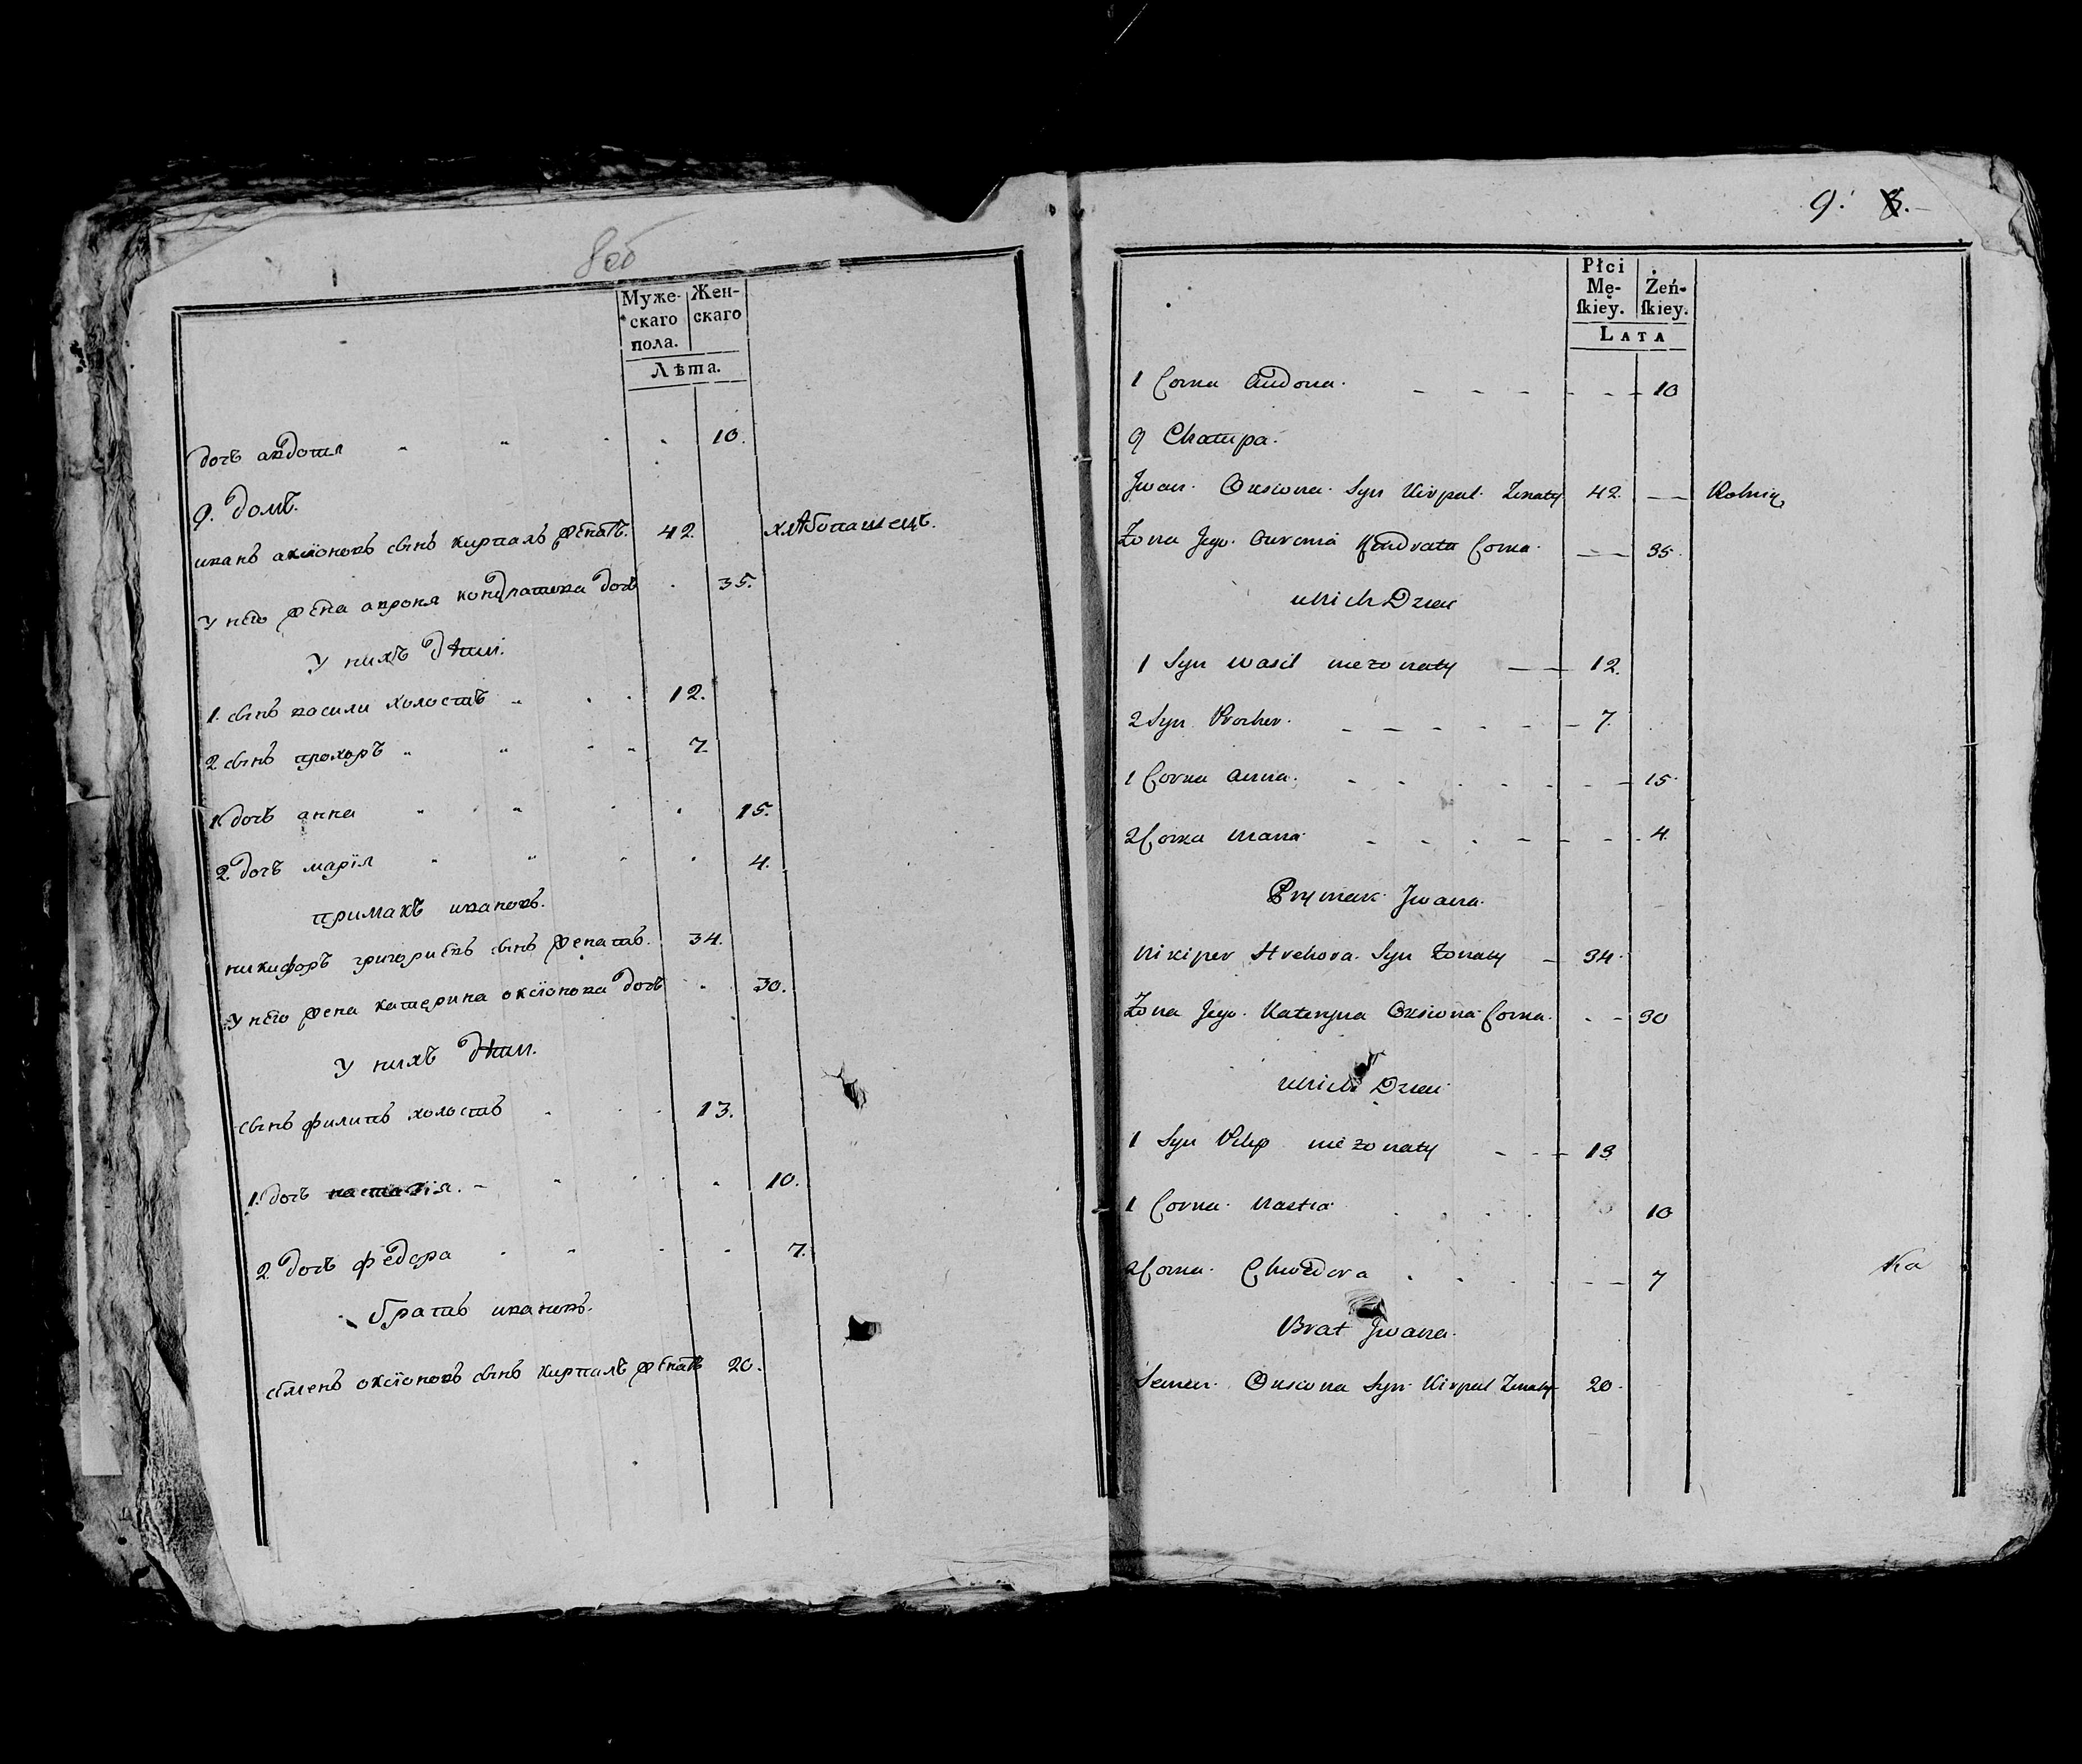 8об
Муже-
скаго
пола.
Жен-
скаго
Лѣта.
дочь авдотия 10.
9. Домъ.
иванъ аксіоновъ сынъ кирпалъ женатъ. 42. хлѣбопашецъ.
у него жена авроня кондратова дочь 35.
у нихъ дѣти.
1. сынъ василй холостъ 12.
2 сынъ прохоръ 7
1 дочь анна 15.
2. дочь марія 4.
примакъ ивановъ.
никифоръ григориевъ сынъ женатъ. 34.
у него жена катерина оксіонова дочь 30.
у нихъ дѣти.
сынъ филипъ холостъ 13.
1. дочь настазія. 10.
2. дочь федора 7.
братъ ивановъ.
семенъ оксіоновъ сынъ кирпалъ женатъ 20.
9. 8.
Płci
Mę-
ſkiey.
Żeń-
ſkiey.
LATA
1 Corka Audona. 10
9 Chatupa.
Jwan. Oxsiona. Syn Kirpal. Zonaty 42. Rolnig
Zona Jego. Owronia Kondrata Corka. 35.
u Nich Dzieci
1 Syn Wasil niezonaty 12.
2 Syn Prochor. 7.
1 Corka Anna. 15.
2 Corka Maria 4.
Prymak Jwana.
Nikiper Hrehora. Syn Zonaty 34.
Zona Jego. Kateryna Oxsiona Corka. 30
u Nich Dzieci
1 Syn Pilip niezonaty 13
1 Corka. Nastia 10
2 Corka. Chwedora 7
Ka
Brat Jwana.
Semen. Oxsiona Syn Kirpal Zonaty 20.